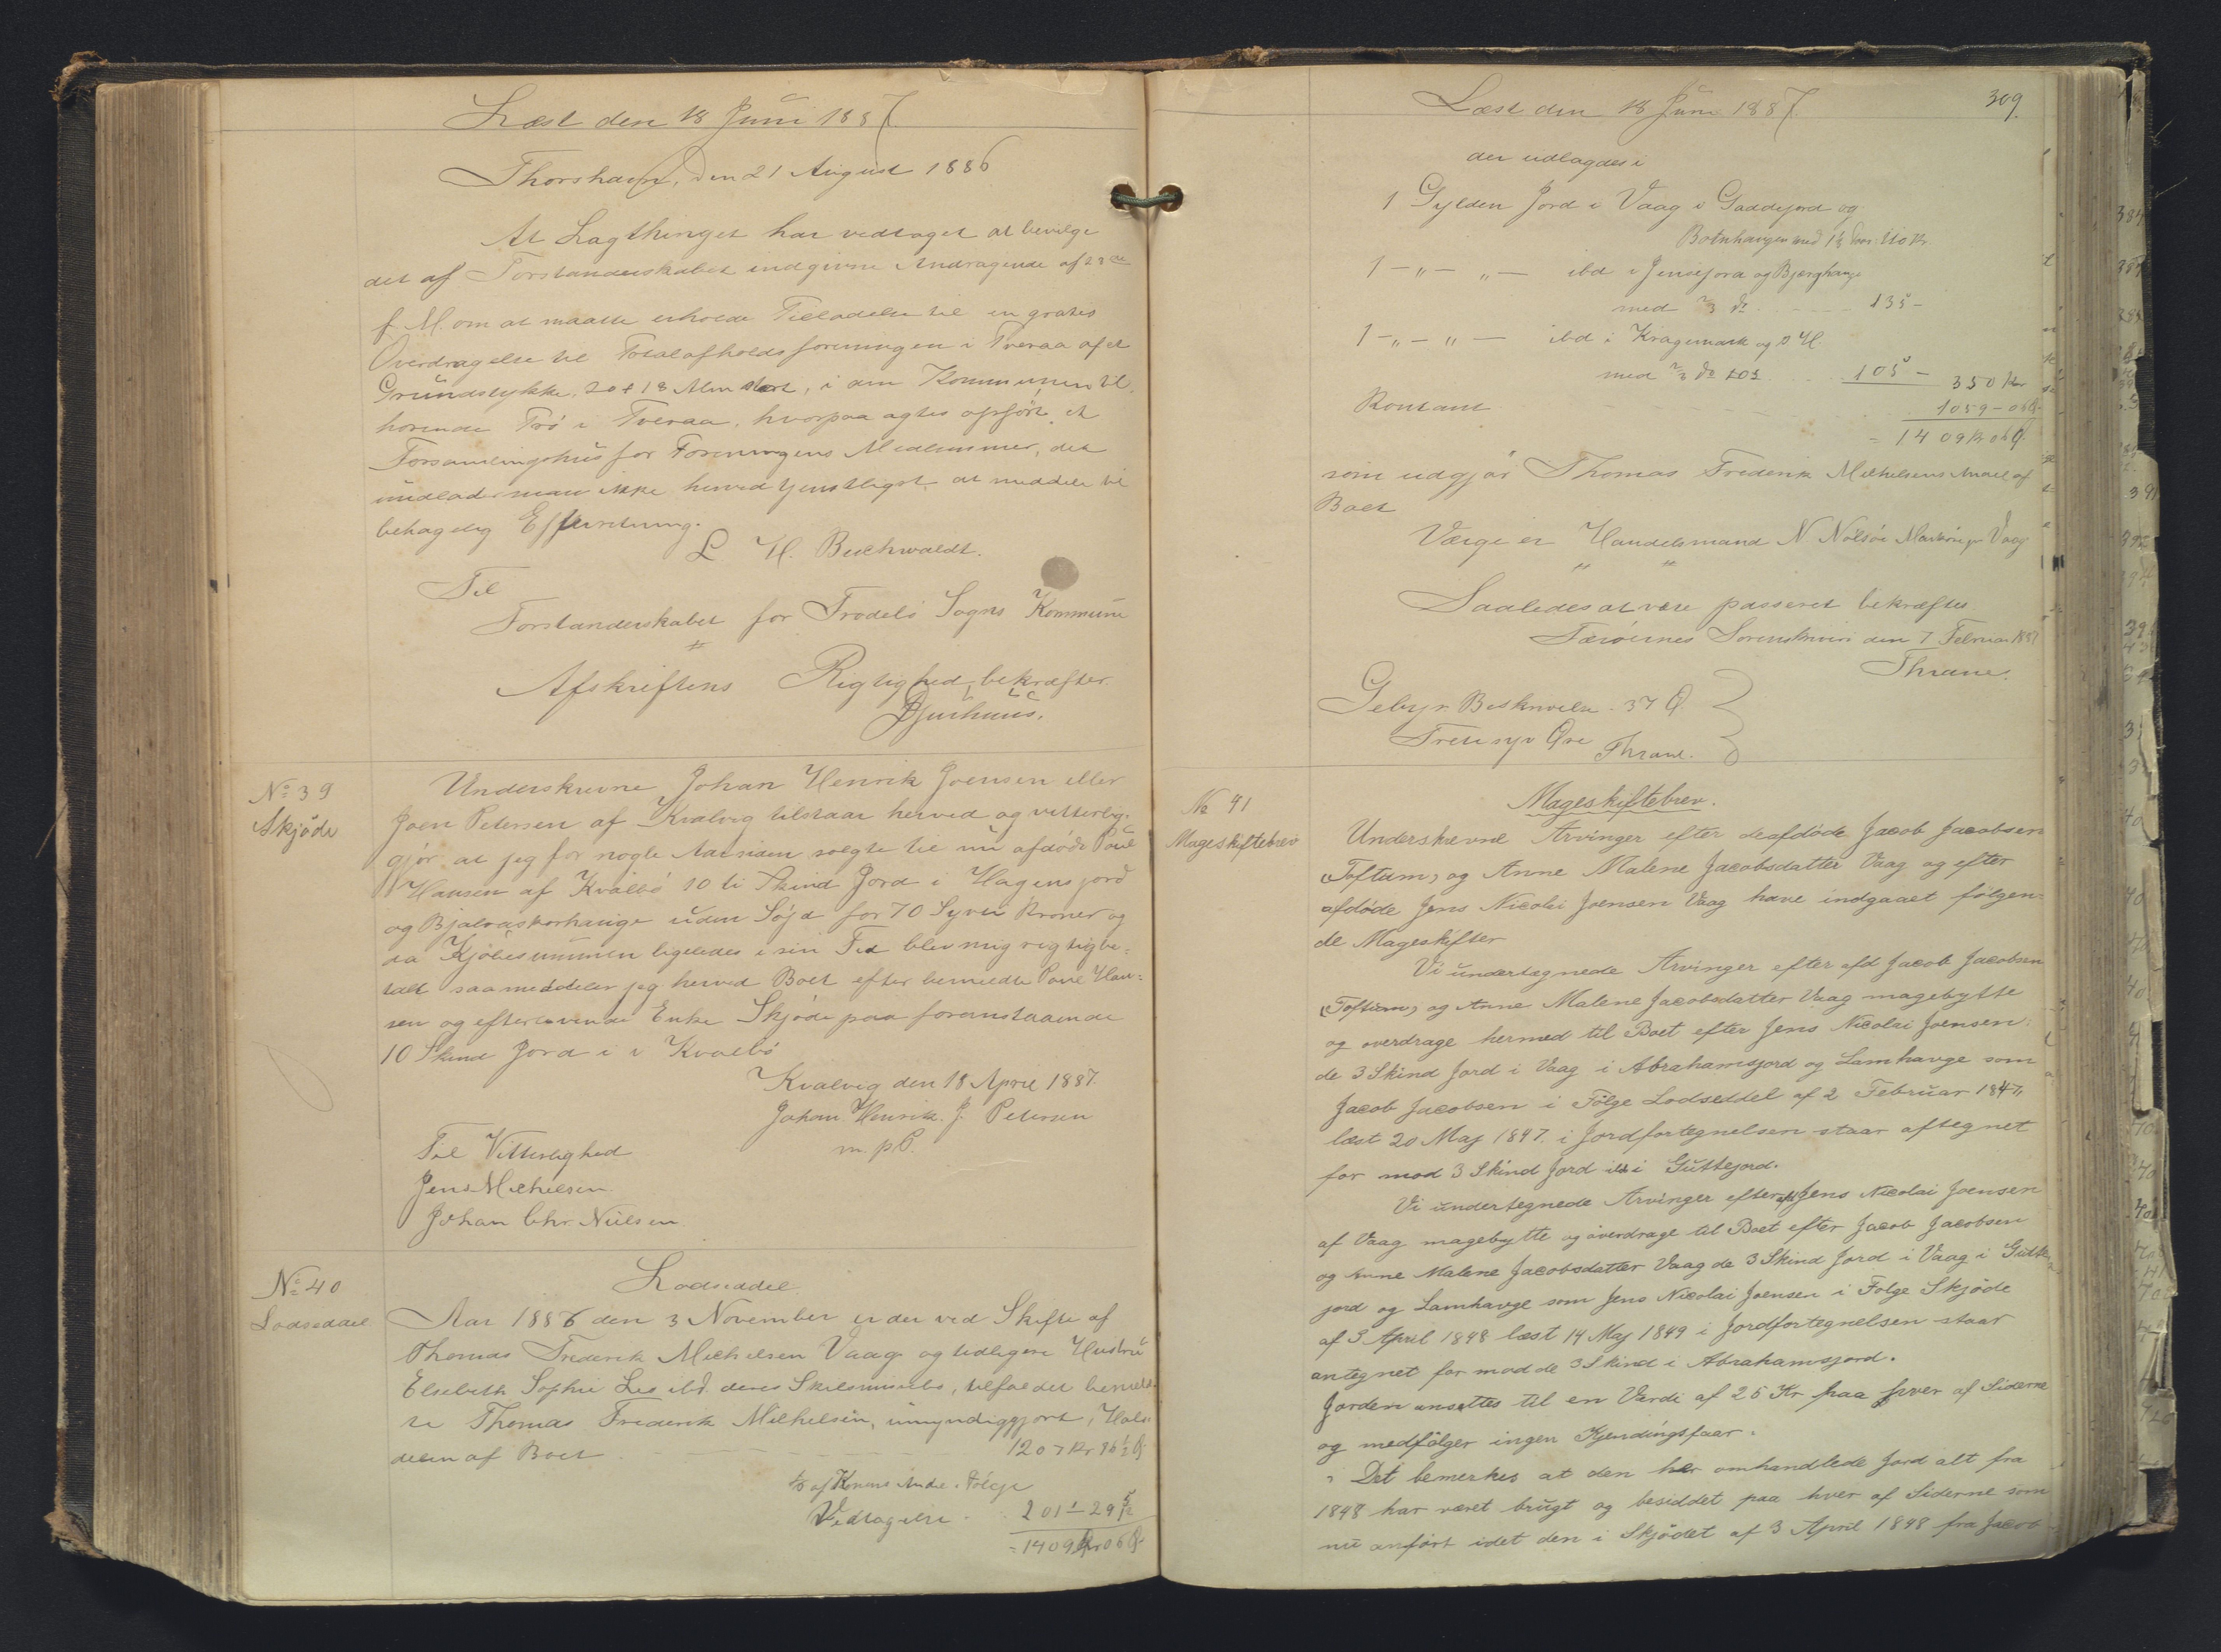 Læst den 18 Juni 1887.
Thorshavn, den 21 August 1886
At Lagthinget har vedtaget at bevilge
det af Forstanderskabet indgivne Andragende af 23de
f. M. om at maatte erholde Tilladelse til en gratis
Overdragelse til Totalafholdsforeningen i Tveraa af et
Grundstykke, 20 + 18 Alen stort, i den Kommunen til
hørende Trø i Tveraa, hvorpaa agtes opført et
Forsamlingshus for Foreningens Medlemmer, det
undlader man ikke herved tjenstligst at meddele til
behagelig Efterretning.
L. H. Buchwaldt.
Til
Forstanderskabet for Frodebø Sogns Kommune
Afskriftens Rigtighed bekræfter
Djurhuus.
No 39
Skjøde
Underskrevne Johan Henrik Joensen eller
Joen Petersen af Kvalvig tilstaar herved og vitterlig-
gjør at jeg for nogle Aar siden solgte til nu afdøde Poul
Hansen af Kvalbø 10 ti Skind Jord i Hagens jord
og uden for 70 Syvti Kroner og
da Kjøbesummen ligeledes i sin Tid blev mig rigtig be-
talt saa meddeler jeg herved Boet efter bemeldte Poul Han-
sen og efterlevende Enke Skjøde paa foranstaaende
10 Skind Jord i i Kvalbø
Kvalvig den 18 April 1887.
Johan Henrik J. Petersen
m. p. P.
Til Vitterlighed
Jens Michelsen
Johan Chr. Nielsen
No 40
Lodseddel
Lodseddel
Aar 1886 den 3 November er der ved Skifte af
Thomas Frederik Michelsen Vaag og tidligere Hustru
Elsebeth Sophie ibd. deres Skilsmissebo, tilfaldet bemeld-
te Thomas Frederik Michelsen, umyndiggjort, Halv-
delen af Boet 1207 Kr 76½ Ø
1/3 af Konens Andel i Følge
Vedtagelse 201 - 29
= 1409 Kr 06 Ø
Læst den 18 Juni 1887. 309.
der udlagdes i
1 Gylden Jord i Vaag i Gaddejord og
Botnhauge med 110 Kr.
1 - „ - „ - ibd i og Bjerghauge
med 2/3 do 135 -
1 - „ - „ - ibd i Kragemark og
med 2/3 do 105 - 350 Kr
Kontant 1059 - 06 Ø
= 1409 Kr 06 Ø
som udgjør Thomas Frederik Michelsens Andel af
Boet
Værge er Handelsmand N. Nolsøe pr Vaag
Saaledes at være passeret bekræftes
Færøernes Sorenskriveri den 7 Februar 1887
Thrane.
Gebyr. Beskrivelse 37 Ø
Tretisyv Øre Thrane.
No 41
Mageskiftebrev
Mageskiftebrev.
Underskrevne Arvinger efter de afdøde Jacob Jacobsen
(Toftum) og Anne Malene Jacobsdatter Vaag og efter
afdøde Jens Nicolai Joensen Vaag have indgaaet følgen-
de Mageskifter
Vi undertegnede Arvinger efter afd Jacob Jacobsen
(Toftum) og Anne Malene Jacobsdatter Vaag magebytte
og overdrage hermed til Boet efter Jens Nicolai Joensen
de 3 Skind Jord i Vaag i Abrahamsjord og Lamhauge som
Jacob Jacobsen i Følge Lodseddel af 2 Februar 1847,
læst 20 Maj 1847 i Jordfortegnelsen staar aftegnet
for mod 3 Skind Jord ibd i Guttejord.
Vi undertegnede Arvinger efter afd Jens Nicolai Joensen
af Vaag magebytte og overdrage til Boet efter Jacob Jacobsen
og Anne Malene Jacobsdatter Vaag de 3 Skind Jord i Vaag i Gutte-
jord og Lamhauge som Jens Nicolai Joensen i Følge Skjøde
af 3 April 1848 læst 14 Maj 1849 i Jordfortegnelsen staar
antegnet for mod de 3 Skind i Abrahamsjord.
Jorden ansættes til en Værdi af 25 Kr paa hver af Siderne
og medfølger ingen Kjendingsfaar.
Det bemerkes at den her omhandlede Jord alt fra
1848 har været brugt og besiddet paa hver af Siderne som
nu anført idet den i Skjødet af 3 April 1848 fra Jacob